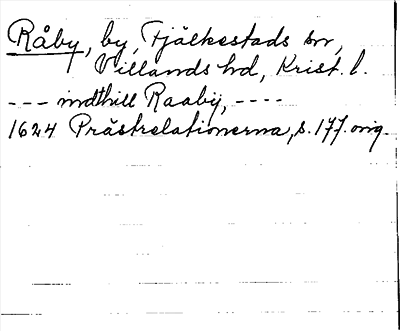 Råby, by, Fjälkestads sn,
Villands hd, Krist. l.
--- indthill Raabÿ, ----
1624 Prästrelationerna, s. 177. orig.